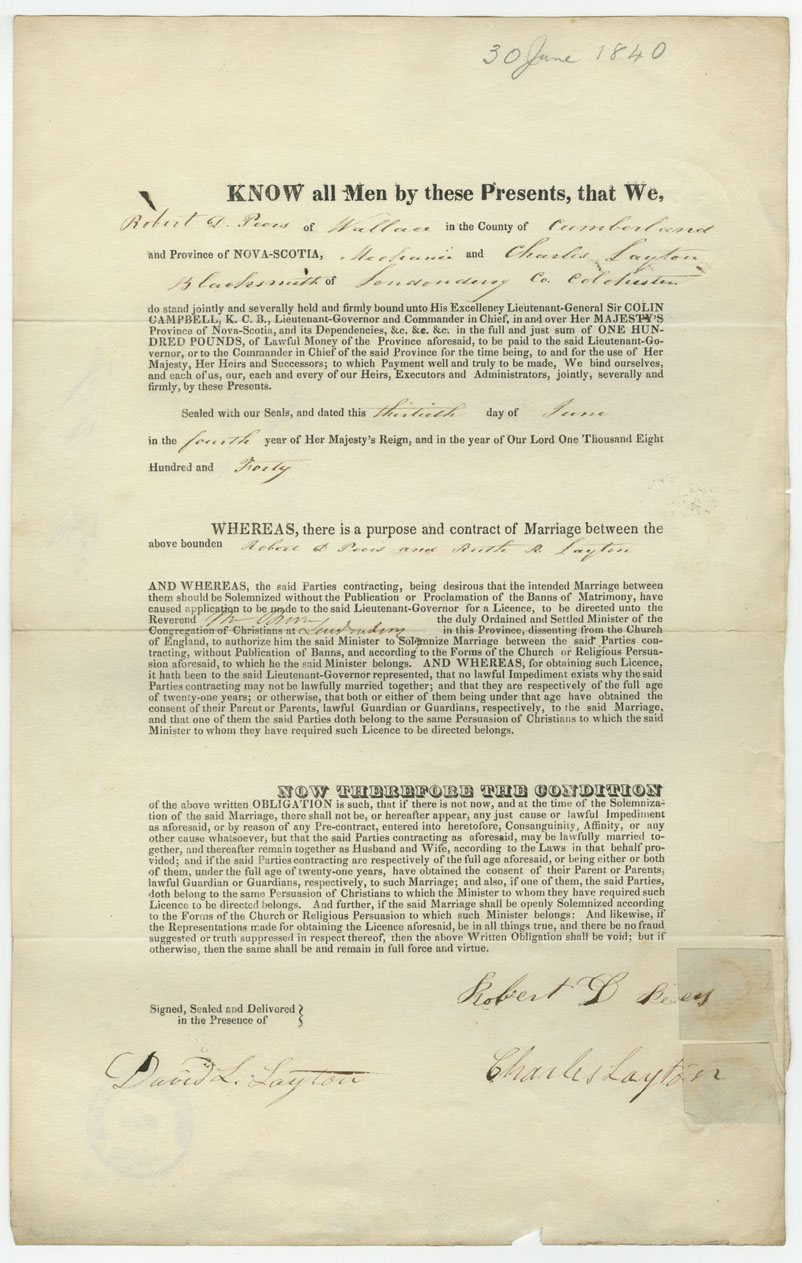 30 June 1840
KNOW all Men by these Presents, that We,
Robert D. Peers of Wallace in the County of Cumberland
and Province of NOVA-SCOTIA, Mechanic and Charles Layton
Blacksmith of Londonderry Co. Colchester
do stand jointly and severally held and firmly bound unto His Excellency Lieutenant-General Sir COLIN
CAMPBELL, K. C. B., Lieutenant-Governor and Commander in Chief, in and over Her MAJESTY'S
Province of Nova-Scotia, and its Dependencies, &c. &c. &c. in the full and just sum of ONE HUN-
DRED POUNDS, of Lawful Money of the Province aforesaid, to be paid to the said Lieutenant-Go-
vernor, or to the Commander in Chief of the said Province for the time being, to and for the use of Her
Majesty, Her Heirs and Successors; to which Payment well and truly to be made, We bind ourselves,
and each of us, our, each and every of our Heirs, Executors and Administrators, jointly, severally and
firmly, by these Presents.
Sealed with our Seals, and dated this thirtieth day of June
in the fourth year of Her Majesty's Reign, and in the year of Our Lord One Thousand Eight
Hundred and Forty
WHEREAS, there is a purpose and contract of Marriage between the
above bounden Robert D Peers and Ruth R. Layton
AND WHEREAS, the said Parties contracting, being desirous that the intended Marriage between
them should be Solemnized without the Publication or Proclamation of the Banns of Matrimony, have
caused application to be made to said Lieutenant-Governor for a Licence, to be directed unto the
Reverend the duly Ordained and Settled Minister of the
Congregation of Christians at Londonderry in this Province, dissenting from the Church
of England, to authorize him the said Minister to Solemnize Marriage between the said Parties con-
tracting, without Publication of Banns, and according to the Forms of the Church or Religious Persua-
sion aforesaid, to which he the said Minister belongs. AND WHEREAS, for obtaining such Licence,
it hath been to the said Lieutenant-Governor represented, that no lawful Impediment exists why the said
Parties contracting may not be lawfully married together; and that they are respectively of the full age
of twenty-one years; or otherwise, that both or either of them being under that age have obtained the
consent of their Parent or Parents, lawful Guardian or Guardians, respectively, to the said Marriage,
and that one of them the said Parties doth belong to the same Persuasion of Christians to which the said
Minister to whom they have required such Licence to be directed belongs.
NOW THEREFORE THE CONDITION
of the above written OBLIGATION is such, that if there is not now, and at the time of the Solemniza-
tion of the said Marriage, there shall not be, or hereafter appear, any just cause or lawful Impediment
as aforesaid, or by reason of any Pre-contract, entered into heretofore, Consanguinity, Affinity, or any
other cause whatsoever, but that the said Parties contracting as aforesaid, may be lawfully married to-
gether, and thereafter remain together as Husband and Wife, according to the Laws in that behalf pro-
vided; and if the said Parties contracting are respectively of the full age aforesaid, or being either or both
of them, under the full age of twenty-one years, have obtained the consent of their Parent or Parents,
lawful Guardian or Guardians, respectively, to such Marriage; and also, if one of them, the said Parties,
doth belong to the same Persuasion of Christians to which the Minister to whom they have required such
Licence to be directed belongs. And further, if the said Marriage shall be openly Solemnized according
to the Forms of the Church or Religious Persuasion to which such Minister belongs: And likewise, if
the Representations made for obtaining the Licence aforesaid, be in all things true, and there be no fraud
suggested or truth suppressed in respect thereof, then the above Written Obligation shall be void; but if
otherwise, then the same shall be and remain in full force and virtue.
Robert D Peers
Signed, Sealed and Delivered
in the Presence of
David L. Layton
Charles Layton